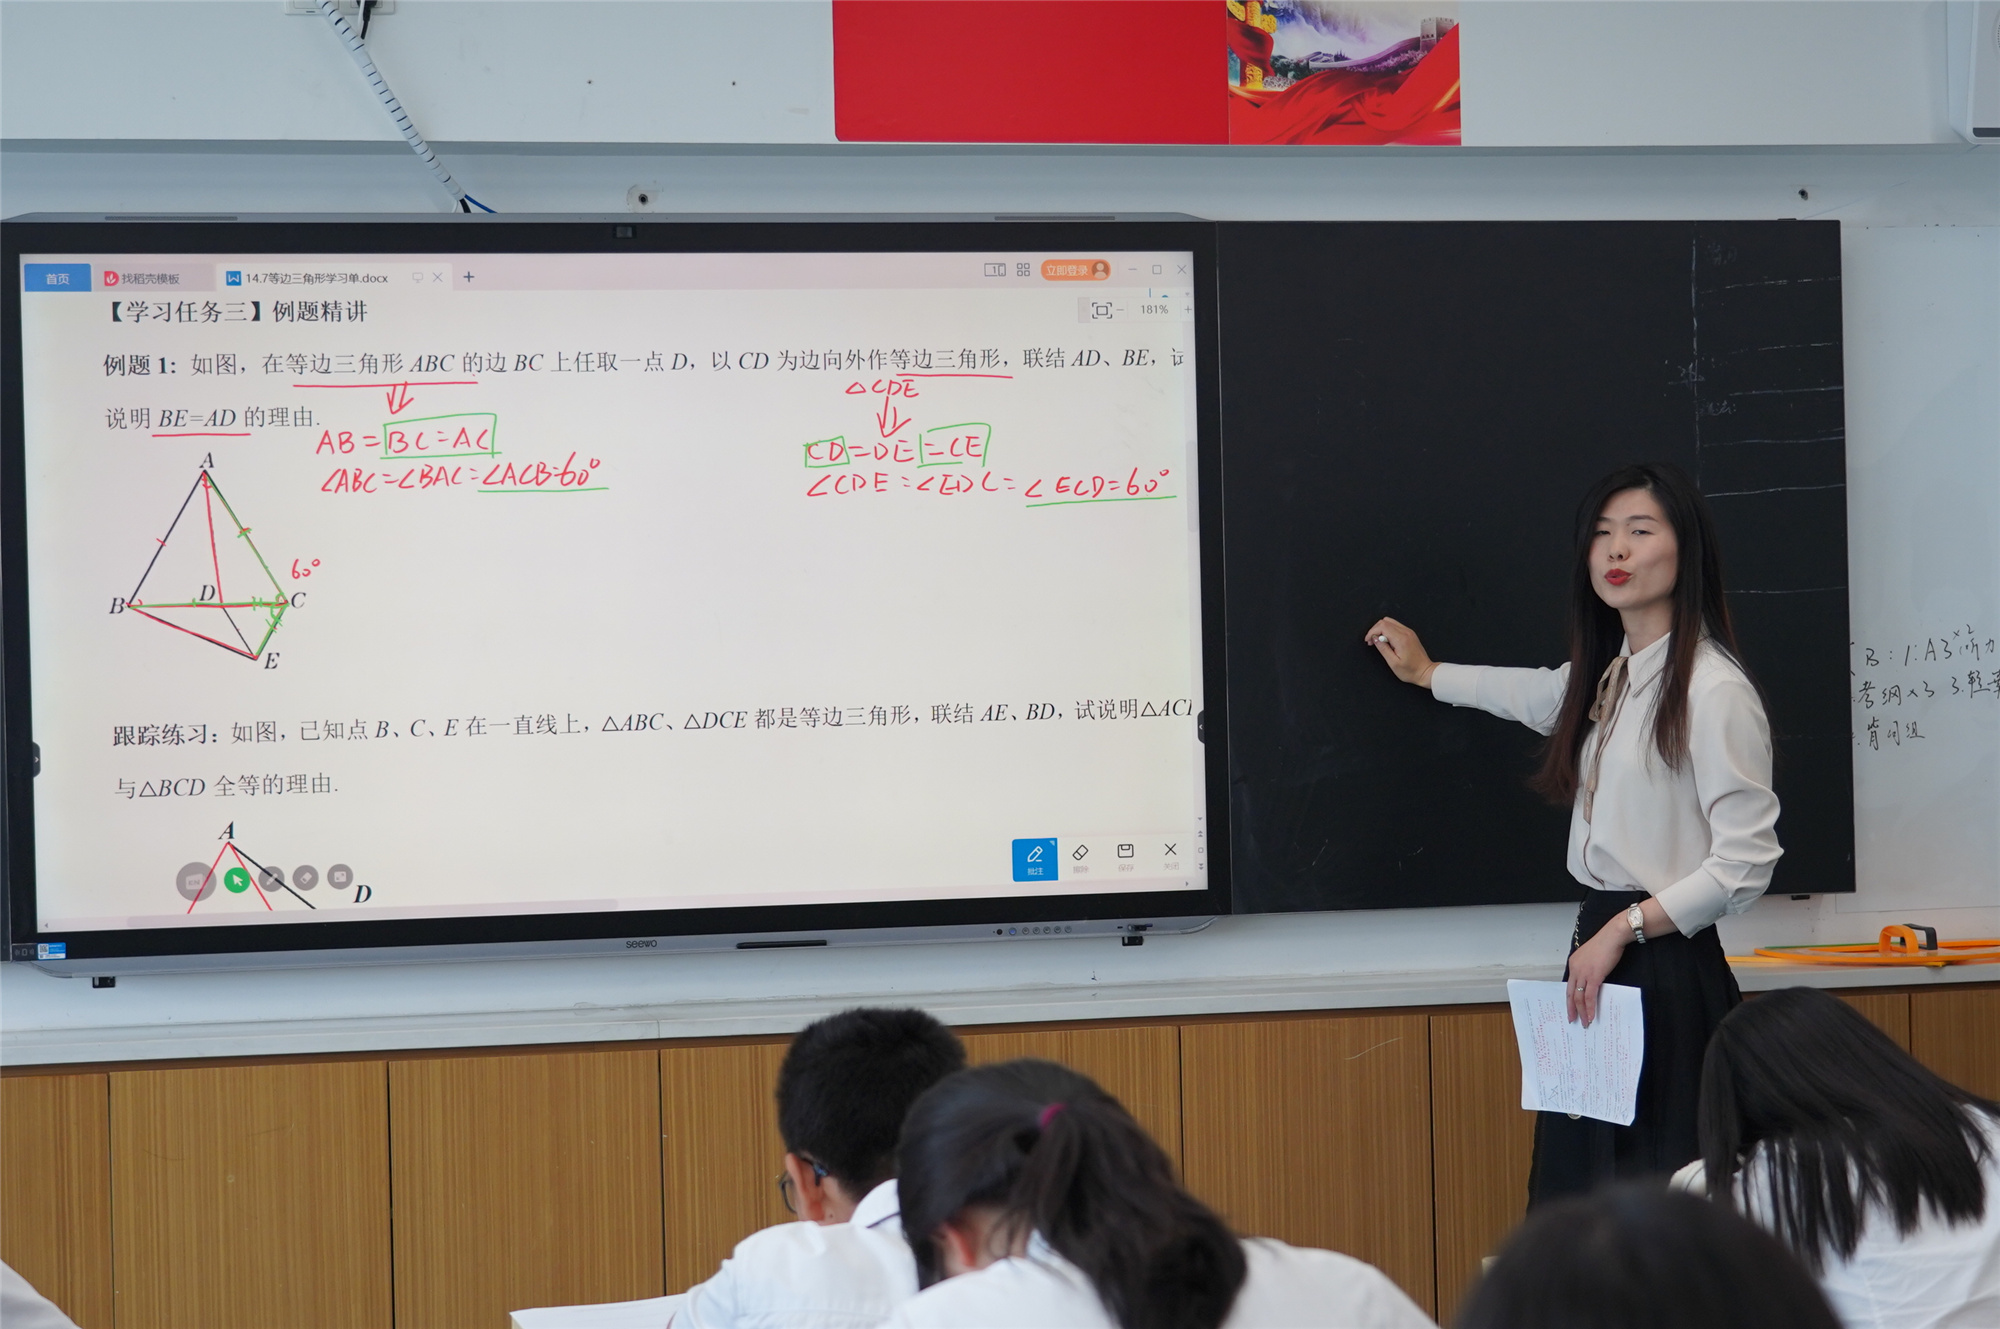 首页 找稻壳模板 14.7等边三角形学习单.docx 立即登录
181%
【学习任务三】例题精讲
例题1：如图，在等边三角形 ABC 的边 BC 上任取一点 D，以 CD 为边向外作等边三角形，联结 AD、BE，试
△CDE
说明 BE=AD 的理由.
AB=BC=AC
CD=DE=CE
∠ABC=∠BAC=∠ACB=60°
∠CDE=∠EDC=∠ECD=60°
A
60°
B D C
E
跟踪练习：如图，已知点 B、C、E 在一直线上，△ABC、△DCE 都是等边三角形，联结 AE、BD，试说明△ACE
与△BCD 全等的理由.
A
D
批注 擦除 保存 关闭
seewo
B：1：A3×2听力
考纲×3 3.
背词组